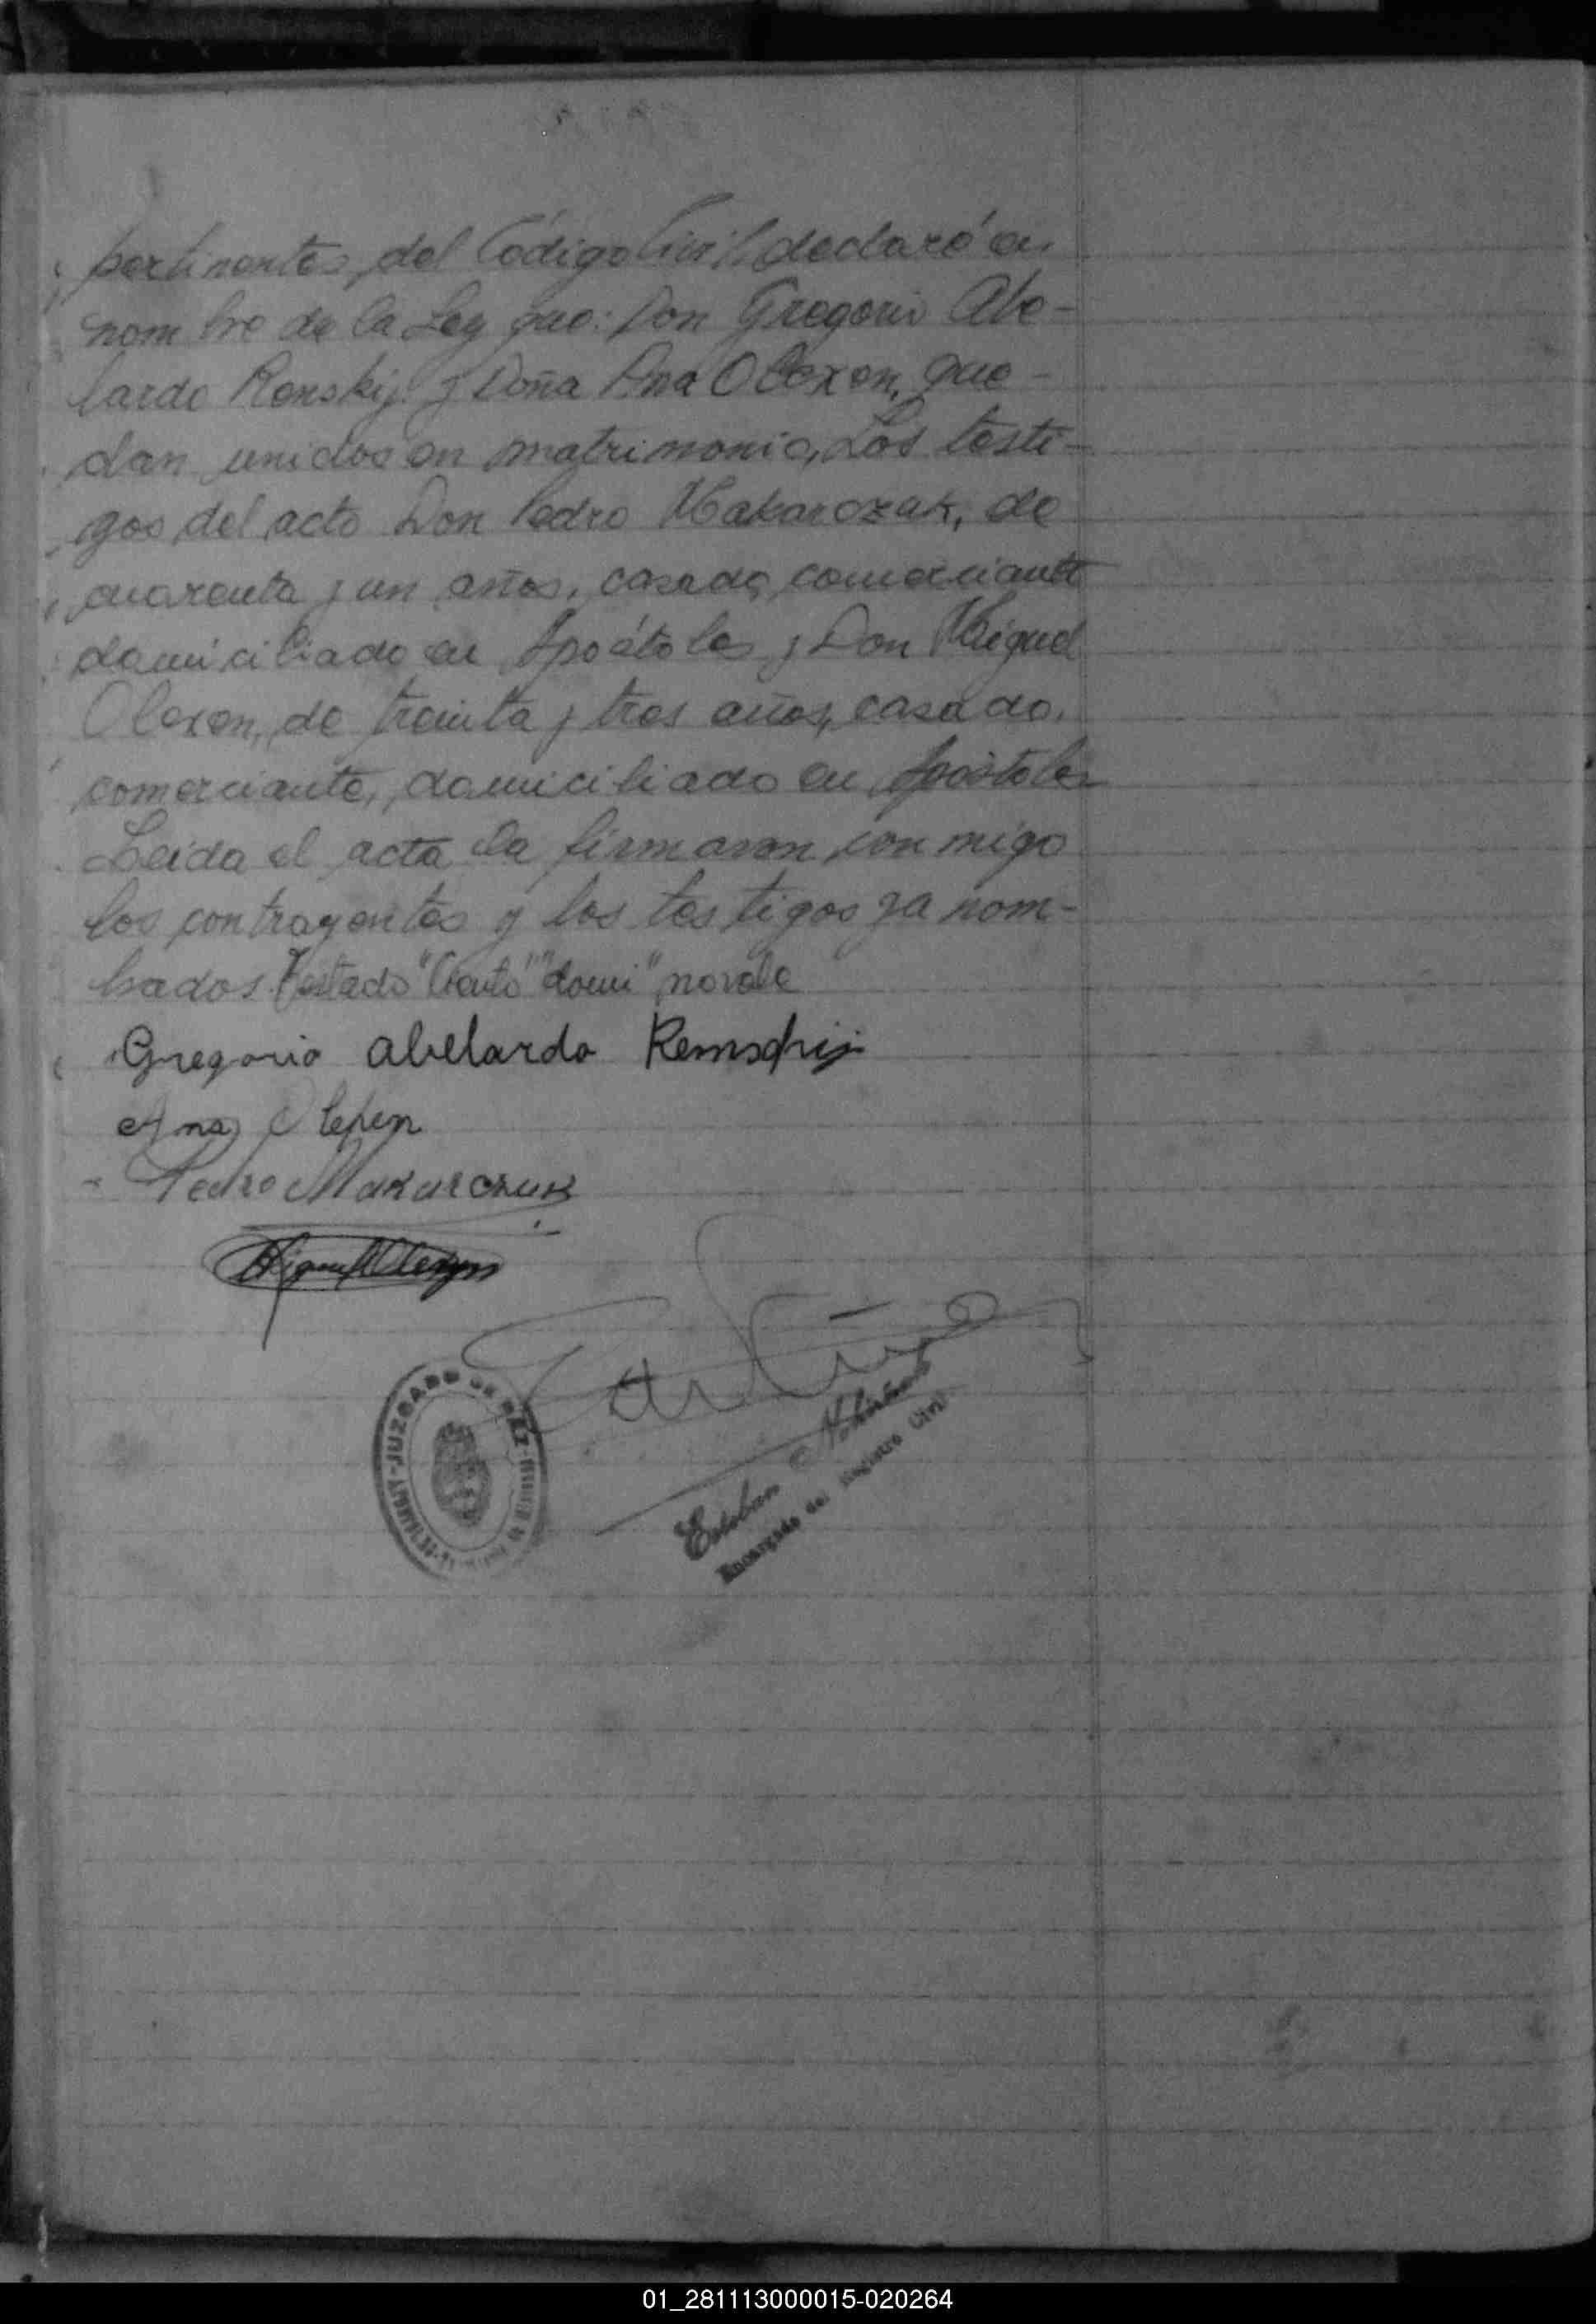 pertinentes del Código Civil declaré en
nombre de la Ley que: Don Gregorio Abe-
lardo Renskij y Doña Ana Olexen, que-
dan unidos en matrimonio, Los testi-
gos del acto Don Pedro Makarczuk, de
cuarenta y un años, casado, comerciante
domiciliado en Apóstoles y Don Miguel
Olexen, de treinta y tres años, casado,
comerciante, domiciliado en Apóstoles
Leída el acta la firmaron conmigo
los contrayentes y los testigos ya nom-
brados. Testado "domi" no vale
Gregorio Abelardo
Ana
Pedro Makarczuk
Miguel Olexyn
JUZGADO DE PAZ
Esteban
Encargado del Registro Civil
01_281113000015-020264